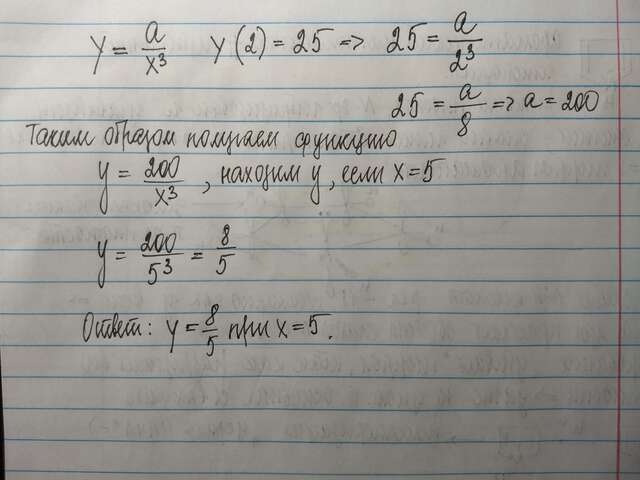 y = a/x³ y(2) = 25 => 25 = a/2³
25 = a/8 => a = 200
Таким образом получаем функцию
y = 200/x³, находим y, если x = 5
y = 200/5³ = 8/5
Ответ: y = 8/5 при x = 5.